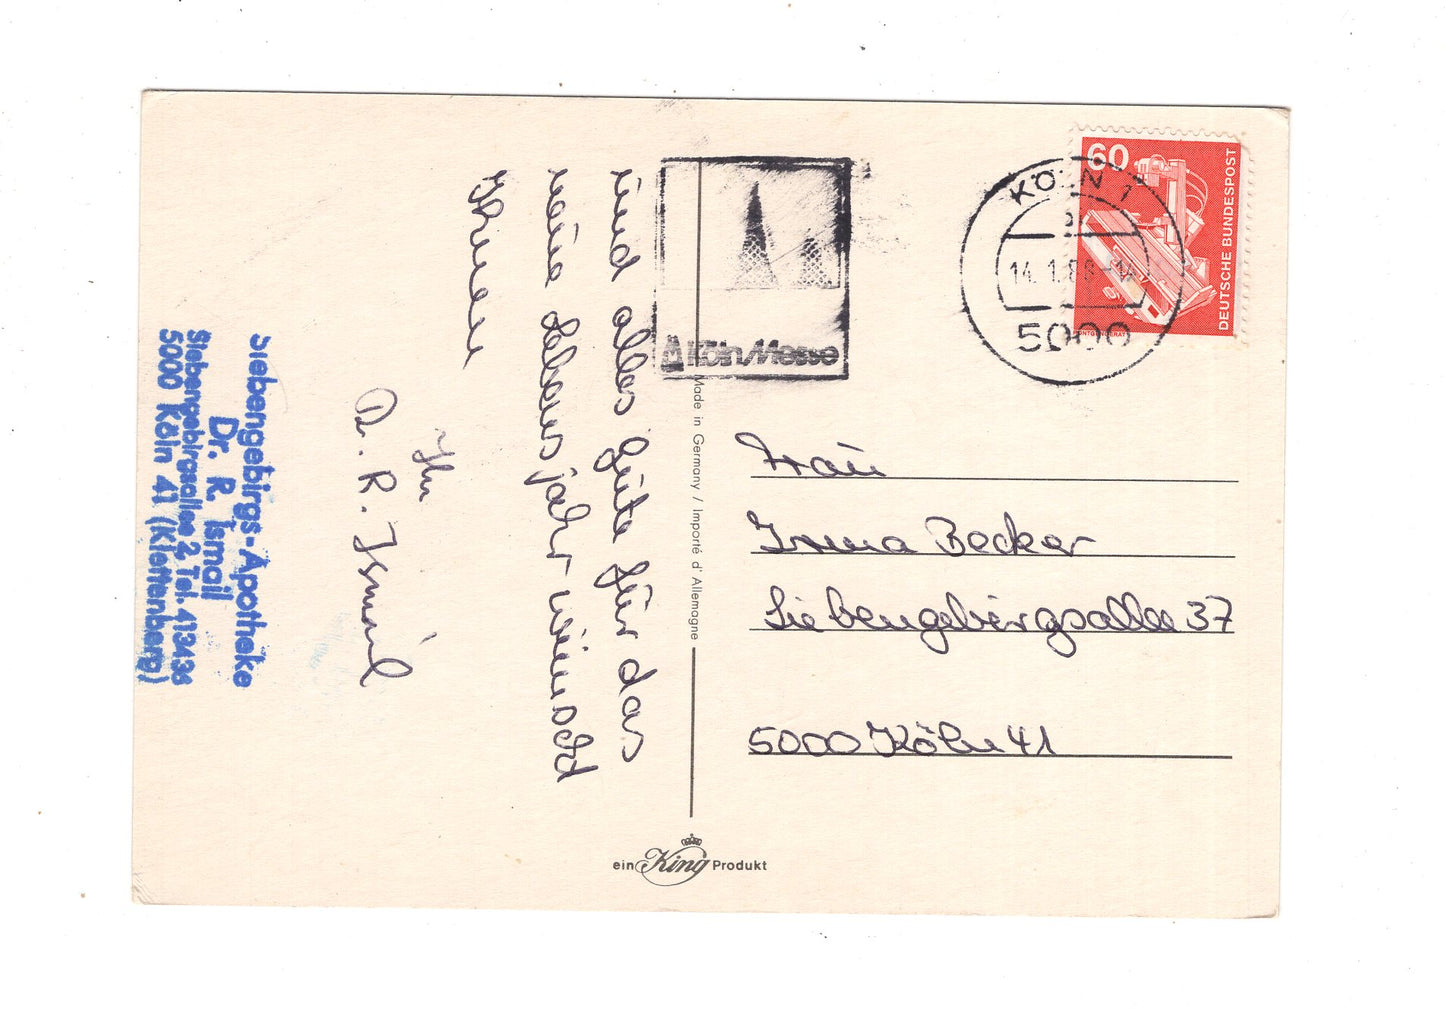 und alles Gute für das
neue Lebensjahr wünscht
Ihnen
Ihr
Dr. R. Ismail
Siebengebirgs-Apotheke
Dr. R. Ismail
Siebengebirgsallee 2 Tel. 413436
5000 Köln 41 (Klettenberg)
Köln/Messe
Made in Germany / Importé d'Allemagne
KÖLN 1
14.1.88-14
5000
60
DEUTSCHE BUNDESPOST
Frau
Irma Becker
Siebengebirgsallee 37
5000 Köln 41
ein King Produkt